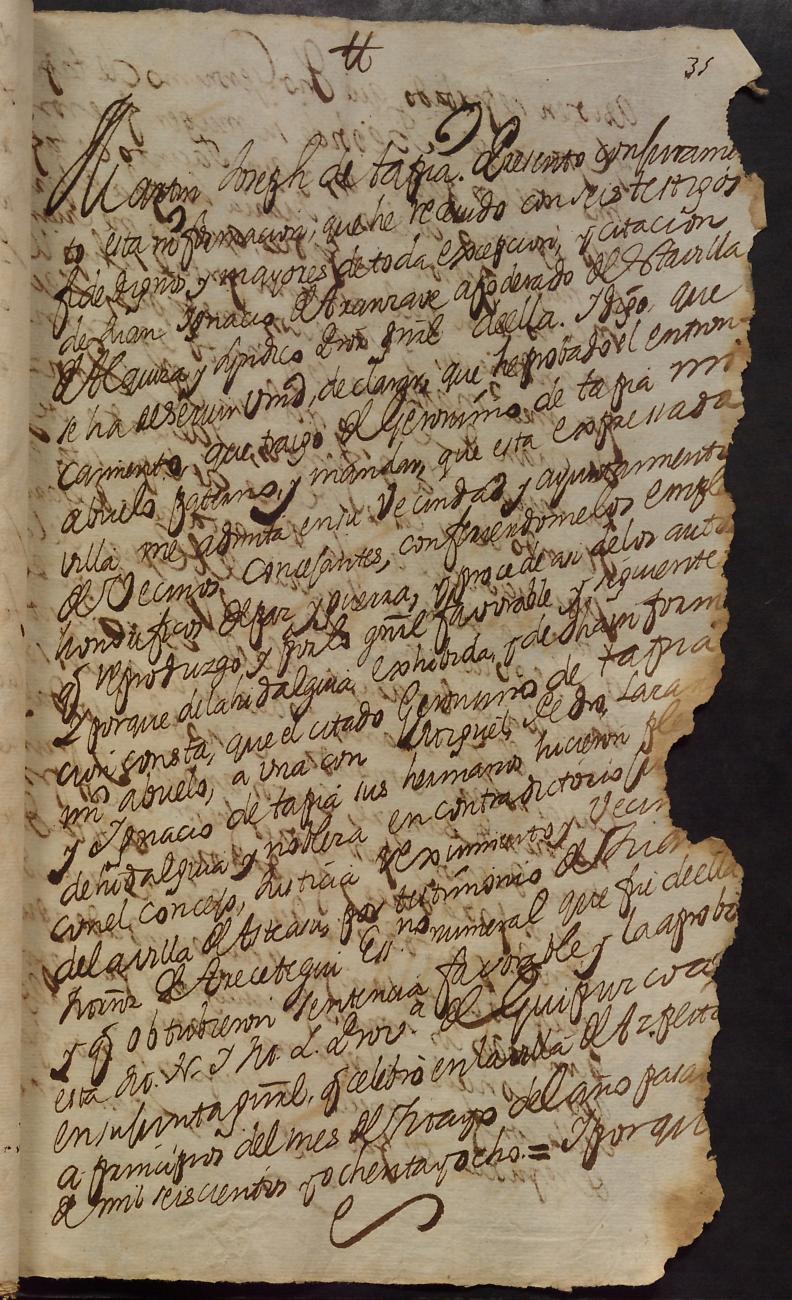 tt
35
Martin Joseph de tapia. Presento con juramen
to esta informacion, que he recivido con seis testigos
fidedignos y mayores de toda excepcion, y citacion
de Juan Ignacio de Aranzave apoderado de esta villa
de Alquiza y sindico Pror gnĩal de ella. Y digo, que
se ha de servir Vmd, declarar, que he probado el entron
camiento, que traigo de Geronimo de tapia mi
abuelo paterno, y mandar, que esta expressada
villa me admita en su vecindad y ayuntamiento
de Vecinos Concejantes, confiriendome los emple
honorificos de paz y guerra, y procede assi de los auto
q reproduzgo, y por lo gnĩal favorable y siguiente
Y porque de la hidalguia exhibida, y de dha inform
cion consta, que el citado Geronimo de tapia
mi abuelo, a una con Miguel, Pedro, Laza
y Ignacio de tapia sus hermanos hicieron ple
de hidalguia y nobleza en contradictorio
con el Concejo, Justicia y Regimiento y Vecin
de la villa de Asteasu, por testimonio de
de Arecetegui Essno numeral que fue de ella
y q obtubieron sentencia favorable y la aprobo
esta M. N. Y M. L. Prova de Guipuzcoa
en su Junta gnĩal, q celebro en la villa de Azpeitia
a principios del mes de Maio del año passa
de mil seiscientos y ochenta y ocho. = Y porque